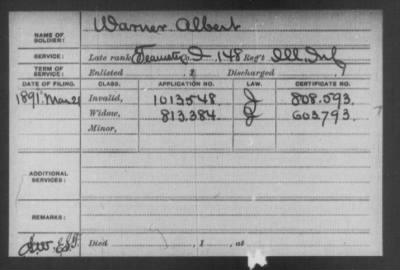 NAME OF SOLDIER: Warner Albert
SERVICE: Late rank Teamster, I, 148 Reg't Ill. Inf
TERM OF SERVICE: Enlisted , 2 Discharged , 1
DATE OF FILING. CLASS. APPLICATION NO. LAW. CERTIFICATE NO.
1891, Mar. 21 Invalid, 1013548 J 808.593.
Widow, 813.384 J 603793.
Minor,
ADDITIONAL SERVICES:
REMARKS:
Died , 1 , at